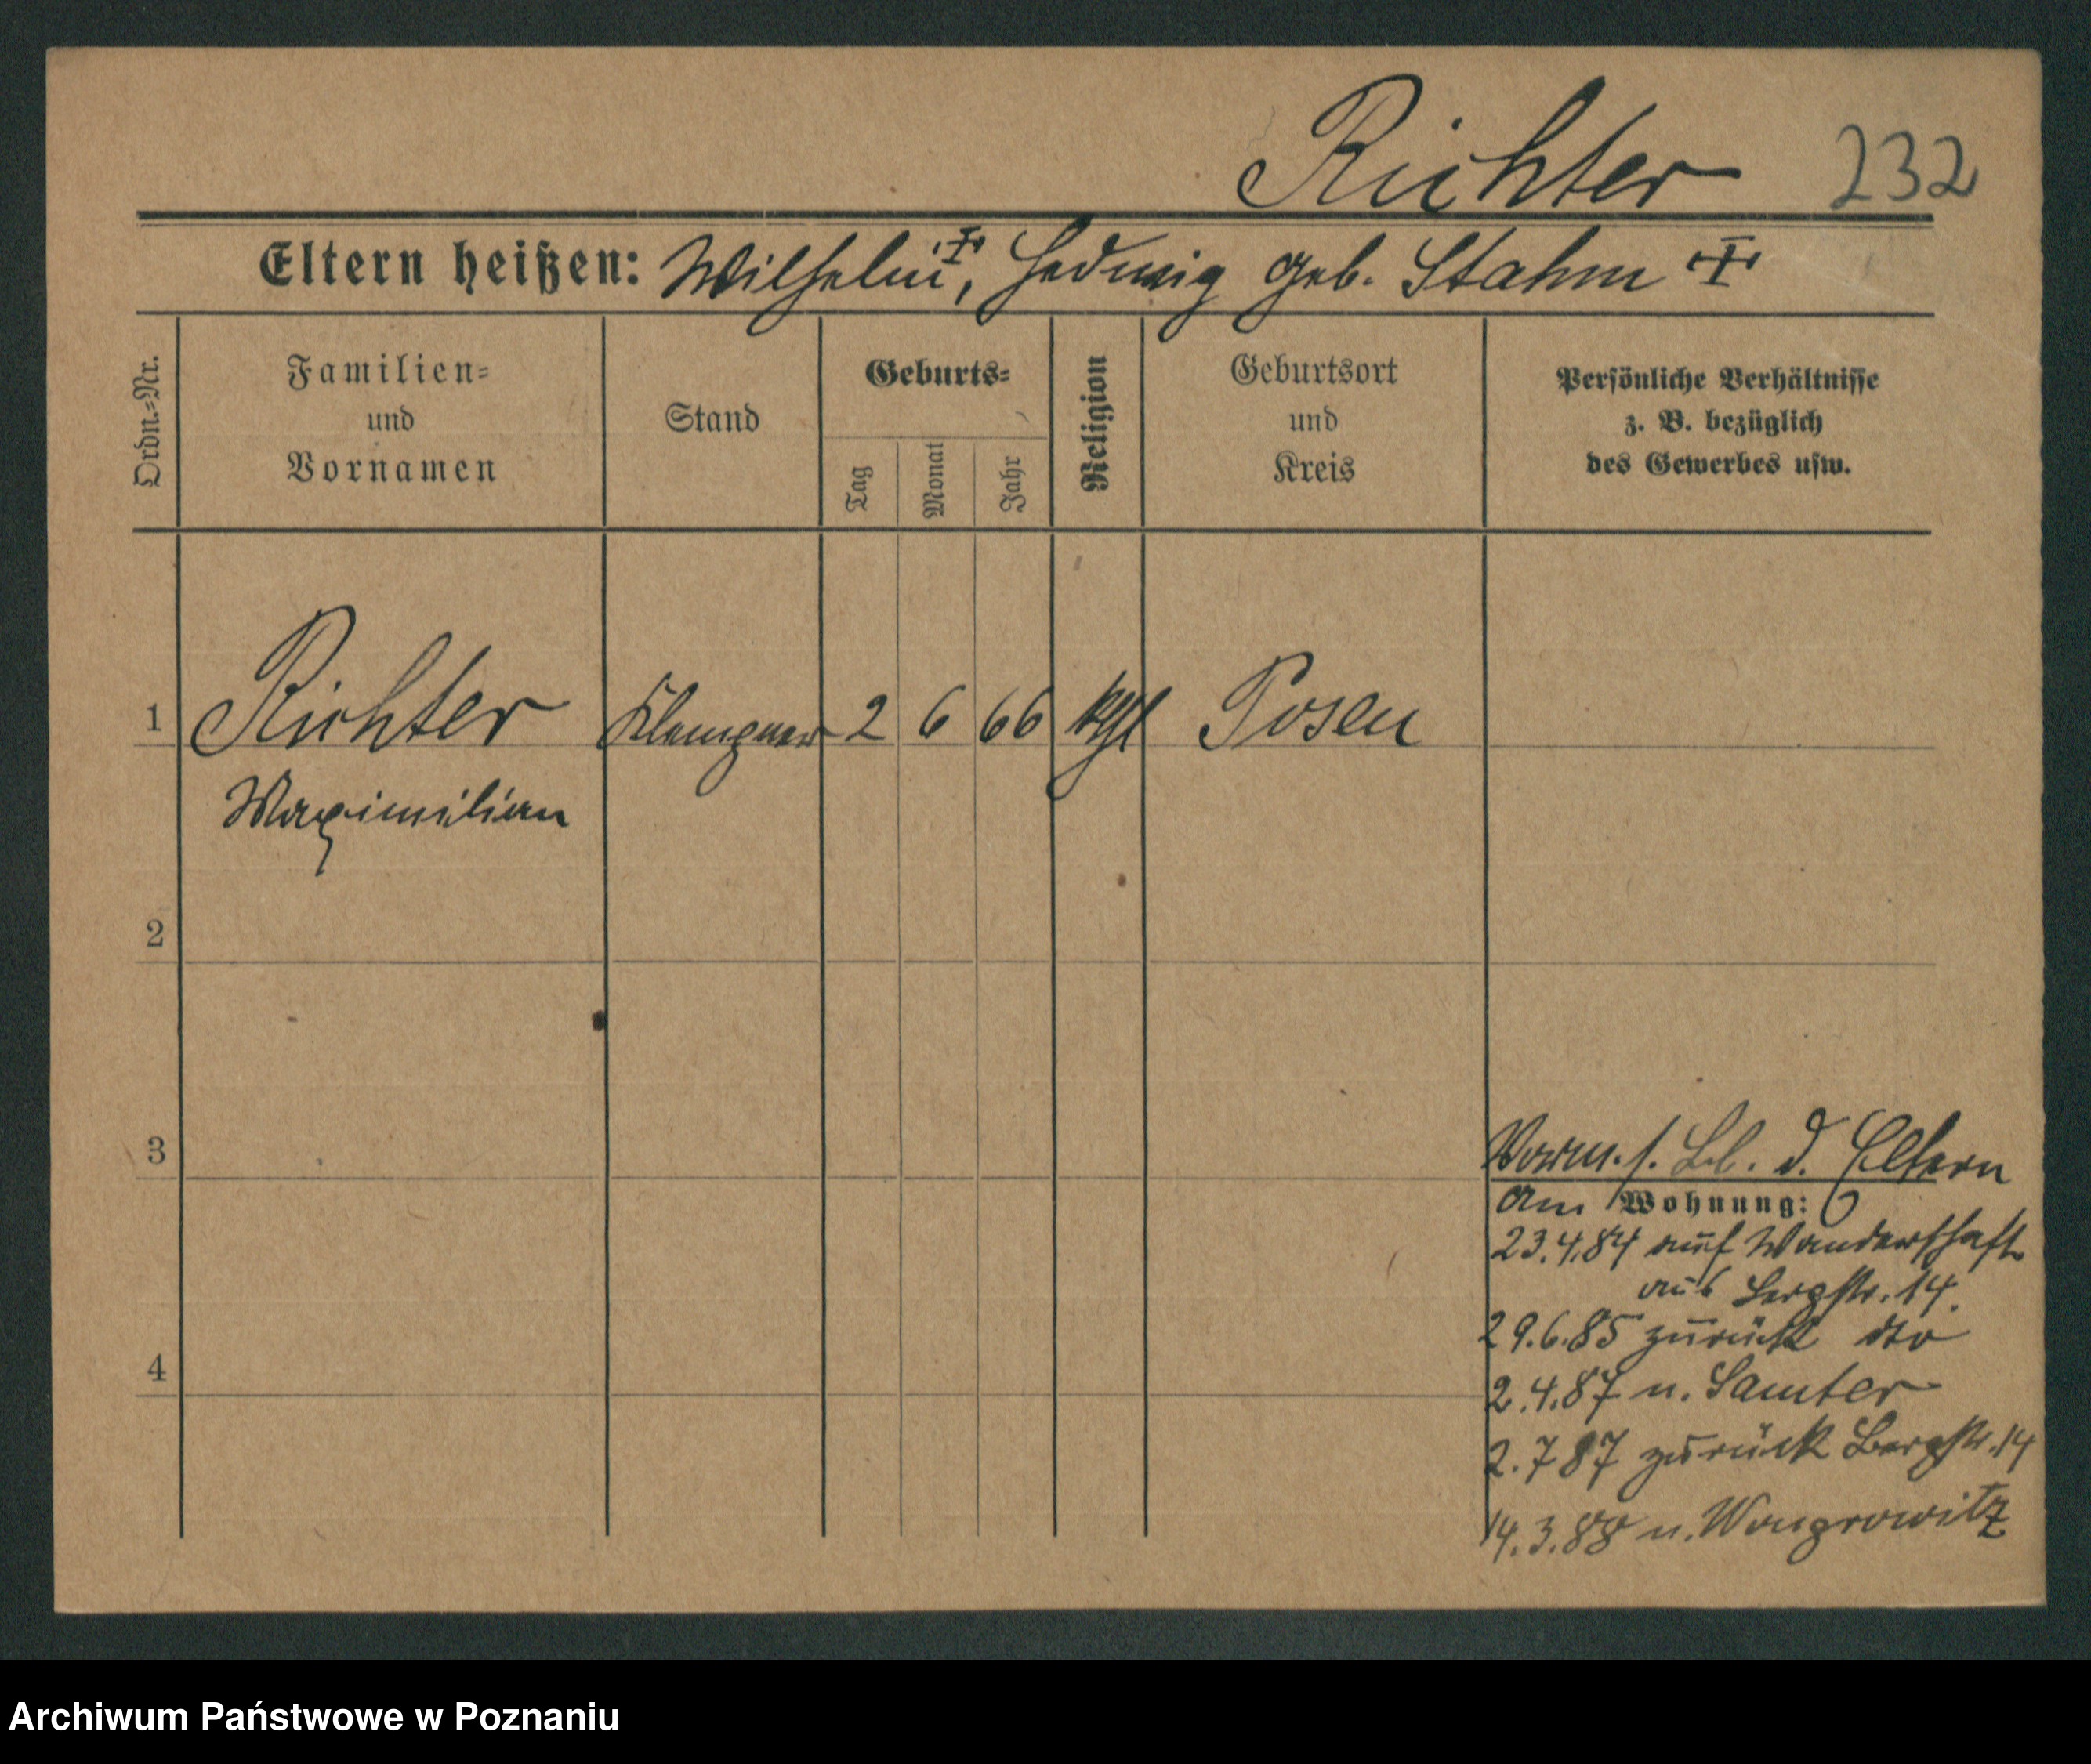 Richter 232
Eltern heißen: Wilhelm ☩, Hedwig geb. Stahm ☩
Ordn.-Nr.
Familien-
und
Vornamen
Stand
Geburts-
Tag
Monat
Jahr
Religion
Geburtsort
und
Kreis
Persönliche Verhältnisse
z. B. bezüglich
des Gewerbes usw.
1 Richter Klempner 2 6 66 kthl Posen
Maximilian
2
3
Vorm. s. Bl. d. Eltern
am Wohnung:
23.4.84 auf Wanderschaft
aus Bergstr. 14.
29.6.85 zurück dto
4
2.4.87 n. Samter
2.7 87 zurück Bergstr. 14
14.3.88 n. Wongrowitz
Archiwum Państwowe w Poznaniu